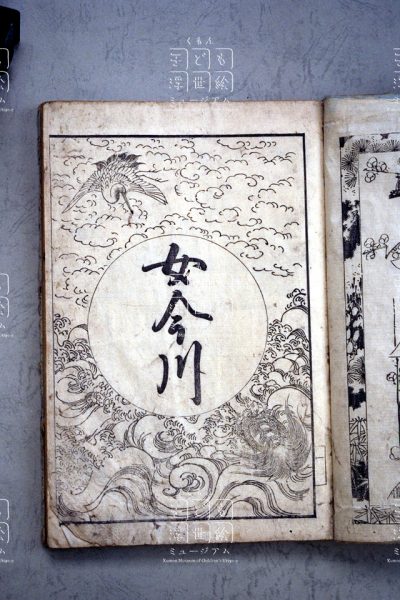 くもん
子ども
浮世絵
ミュージアム
女今川
くもん
子ども
浮世絵
ミュージアム
Kumon Museum of Children's Ukiyo-e